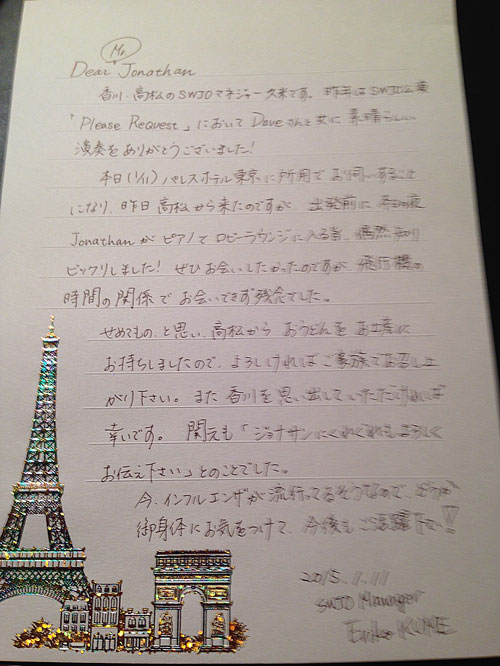 Mr.
Dear Jonathan
香川・高松のSWJOマネジャー久米です。昨年はSWJO公演
「Please Request」においてDaveさんと共に素晴らしい
演奏をありがとうございました!
本日(1/11)パレスホテル東京に所用でお伺いすること
になり、昨日高松から来たのですが、出発前に
Jonathanがピアノでロビーラウンジに入る旨、偶然知り
ビックリしました! ぜひお会いしたかったのですが、飛行機の
時間の関係でお会いできず残念でした。
せめてもの、と思い、高松からおうどんをお土産に
お持ちしましたので、よろしければご家族でお召し上
がり下さい。また香川を思い出していただければ
幸いです。 関元も「ジョナサンにくれぐれもよろしく
お伝え下さい」とのことでした。
今、インフルエンザが流行ってるそうなので、どうか
御身体にお気をつけて、今後もご活躍下さい!!
2015.1.11
SWJO Manager
Eriko KUME